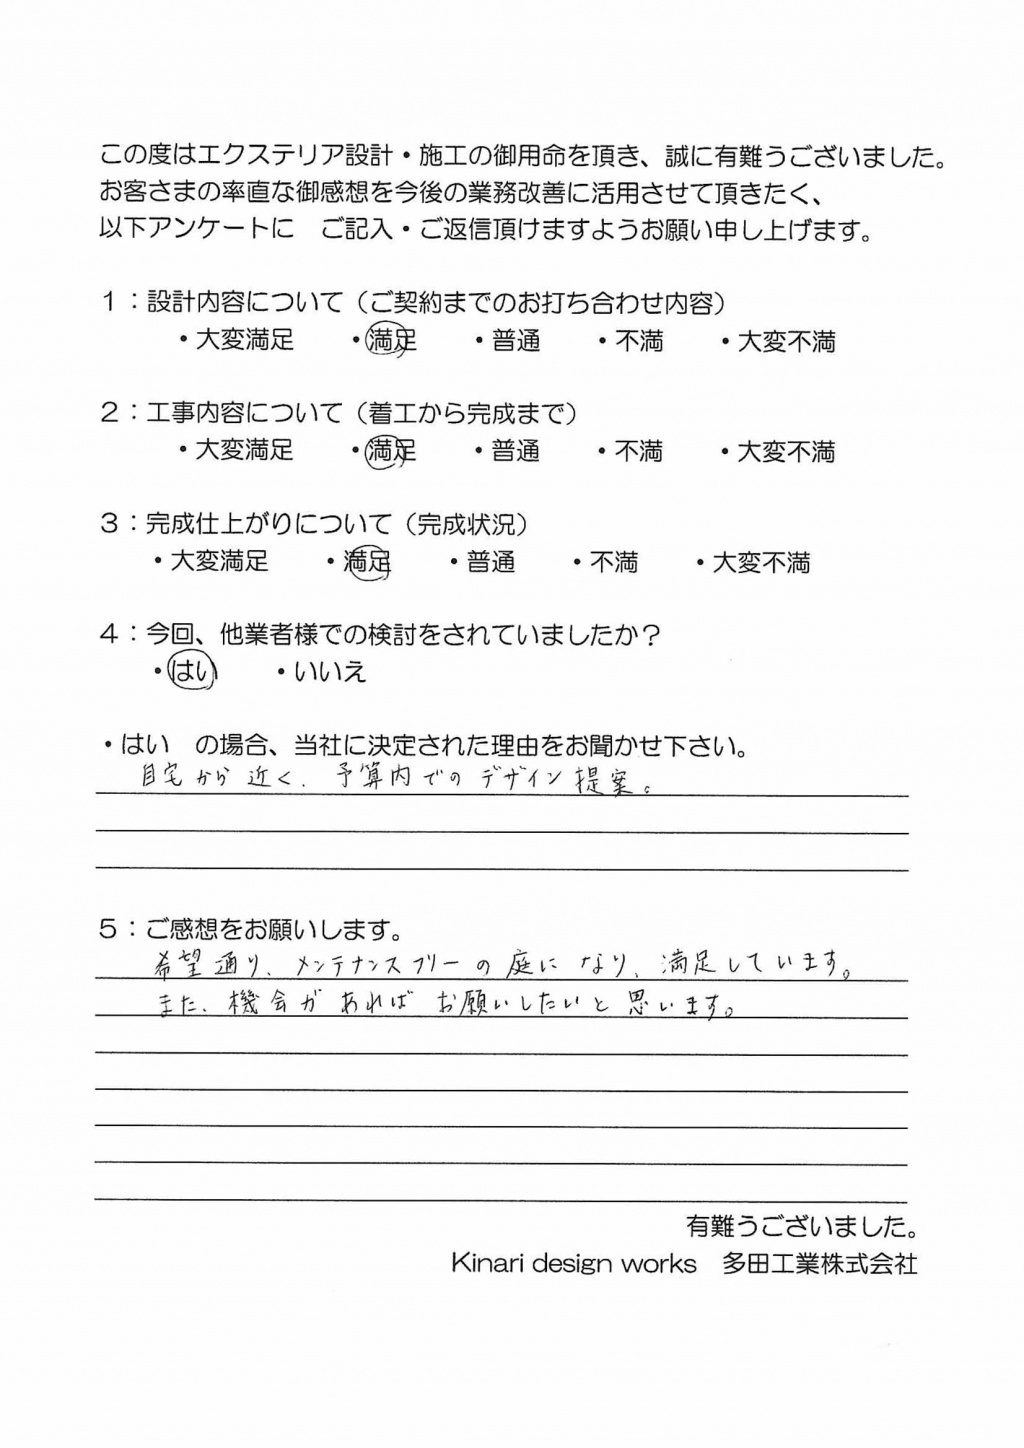 この度はエクステリア設計・施工の御用命を頂き、誠に有難うございました。
お客さまの率直な御感想を今後の業務改善に活用させて頂きたく、
以下アンケートに　ご記入・ご返信頂けますようお願い申し上げます。
１：設計内容について（ご契約までのお打ち合わせ内容）
・大変満足　・満足　・普通　・不満　・大変不満
２：工事内容について（着工から完成まで）
・大変満足　・満足　・普通　・不満　・大変不満
３：完成仕上がりについて（完成状況）
・大変満足　・満足　・普通　・不満　・大変不満
４：今回、他業者様での検討をされていましたか？
・はい　・いいえ
・はい　の場合、当社に決定された理由をお聞かせ下さい。
自宅から近く、予算内でのデザイン提案。
５：ご感想をお願いします。
希望通り、メンテナンスフリーの庭になり、満足しています。
また、機会があればお願いしたいと思います。
有難うございました。
Kinari design works　多田工業株式会社